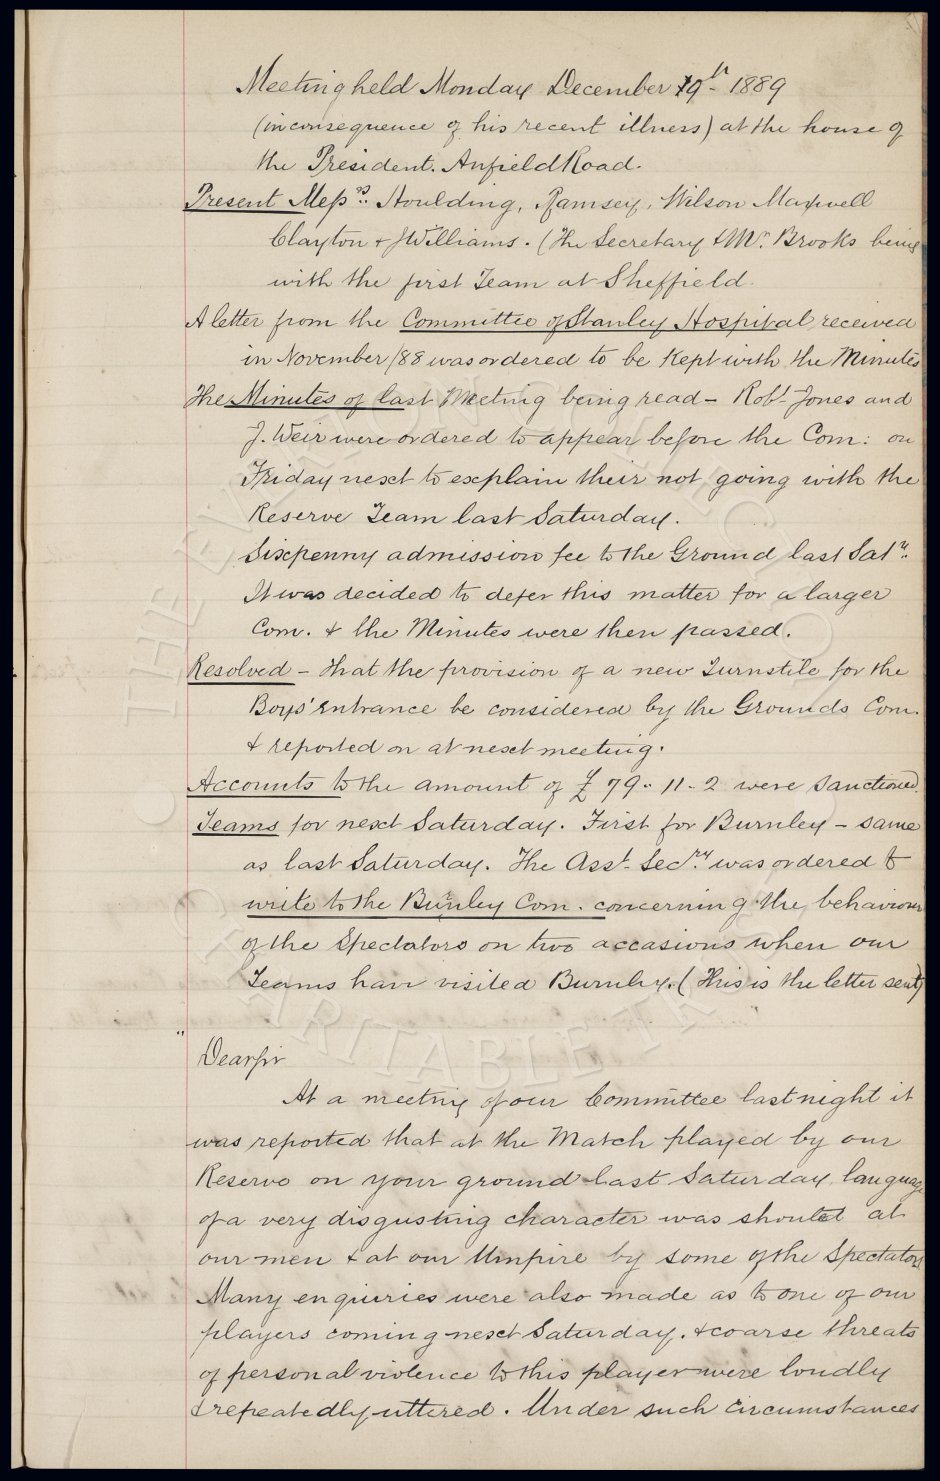 Meeting held Monday December 9th 1889
(in consequence of his recent illness) at the house of
the President. Anfield Road.
Present Messrs. Houlding, Ramsey, Wilson Maxwell
Clayton & J Williams. (The Secretary & Mr. Brooks being
with the first Team at Sheffield.
A letter from the Committee of Stanley Hospital received
in November /88 was ordered to be kept with the Minutes
The Minutes of last Meeting being read - Robt. Jones and
J. Weir were ordered to appear before the Com: on
Friday next to explain their not going with the
Reserve Team last Saturday.
Sixpenny admission fee to the Ground last Saty.
It was decided to defer this matter for a larger
Com. & the Minutes were then passed.
Resolved - that the provision of a new Turnstile for the
Boys' Entrance be considered by the Grounds Com.
& reported on at next meeting.
Accounts to the amount of £79.. 11 - 2 were sanctioned.
Teams for next Saturday. First for Burnley - same
as last Saturday. The Asst. Secry. was ordered to
write to the Burnley Com. concerning the behaviour
of the Spectators on two accasions when our
Teams have visited Burnley. (This is the letter sent)
"
Dear Sir
At a meeting of our Committee last night it
was reported that at the Match played by our
Reserve on your ground last Saturday, language
of a very disgusting character was shouted at
our men & at our Umpire by some of the Spectators
Many enquiries were also made as to one of our
players coming next Saturday. & coarse threats
of personal violence to this player were loudly
& repeatedly uttered. Under such circumstances
THE EVERTON COLLECTION
CHARITABLE TRUST